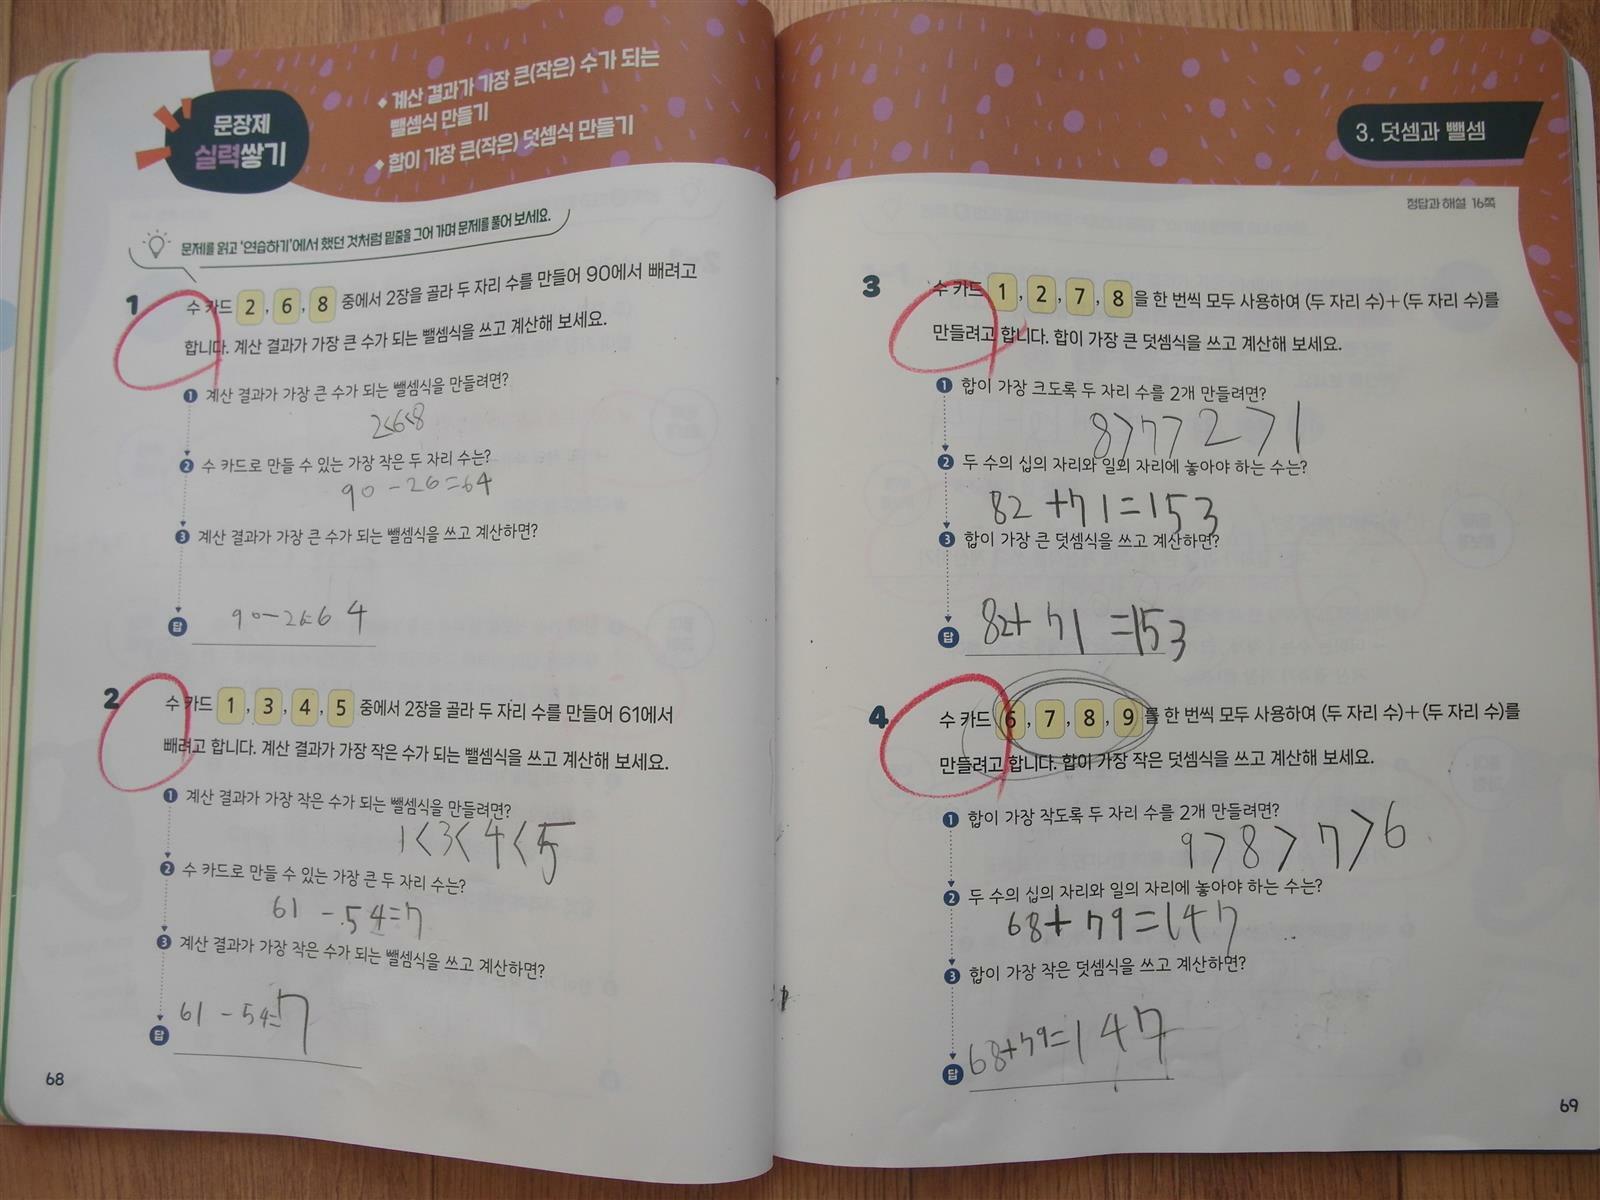 문장제
실력쌓기
◆ 계산 결과가 가장 큰(작은) 수가 되는
뺄셈식 만들기
◆ 합이 가장 큰(작은) 덧셈식 만들기
문제를 읽고 '연습하기'에서 했던 것처럼 밑줄을 그어 가며 문제를 풀어 보세요.
1 수 카드 2, 6, 8 중에서 2장을 골라 두 자리 수를 만들어 90에서 빼려고
합니다. 계산 결과가 가장 큰 수가 되는 뺄셈식을 쓰고 계산해 보세요.
❶ 계산 결과가 가장 큰 수가 되는 뺄셈식을 만들려면?
2<6<8
❷ 수 카드로 만들 수 있는 가장 작은 두 자리 수는?
90-26=64
❸ 계산 결과가 가장 큰 수가 되는 뺄셈식을 쓰고 계산하면?
답 90-26=64
2 수 카드 1, 3, 4, 5 중에서 2장을 골라 두 자리 수를 만들어 61에서
빼려고 합니다. 계산 결과가 가장 작은 수가 되는 뺄셈식을 쓰고 계산해 보세요.
❶ 계산 결과가 가장 작은 수가 되는 뺄셈식을 만들려면?
1<3<4<5
❷ 수 카드로 만들 수 있는 가장 큰 두 자리 수는?
61-54=7
❸ 계산 결과가 가장 작은 수가 되는 뺄셈식을 쓰고 계산하면?
답 61-54=7
68
3. 덧셈과 뺄셈
정답과 해설 16쪽
3 수 카드 1, 2, 7, 8을 한 번씩 모두 사용하여 (두 자리 수)+(두 자리 수)를
만들려고 합니다. 합이 가장 큰 덧셈식을 쓰고 계산해 보세요.
❶ 합이 가장 크도록 두 자리 수를 2개 만들려면?
8>7>2>1
❷ 두 수의 십의 자리와 일의 자리에 놓아야 하는 수는?
82+71=153
❸ 합이 가장 큰 덧셈식을 쓰고 계산하면?
답 82+71=153
4 수 카드 6, 7, 8, 9를 한 번씩 모두 사용하여 (두 자리 수)+(두 자리 수)를
만들려고 합니다. 합이 가장 작은 덧셈식을 쓰고 계산해 보세요.
❶ 합이 가장 작도록 두 자리 수를 2개 만들려면?
9>8>7>6
❷ 두 수의 십의 자리와 일의 자리에 놓아야 하는 수는?
68+79=147
❸ 합이 가장 작은 덧셈식을 쓰고 계산하면?
답 68+79=147
69